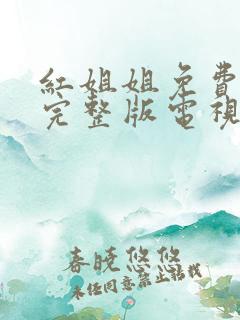 紅姐姐免費
完整版電視
春曉悠悠
未经同意禁止搭我